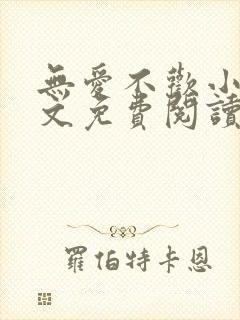 無愛不歡小
文免費閱讀
羅伯特卡恩